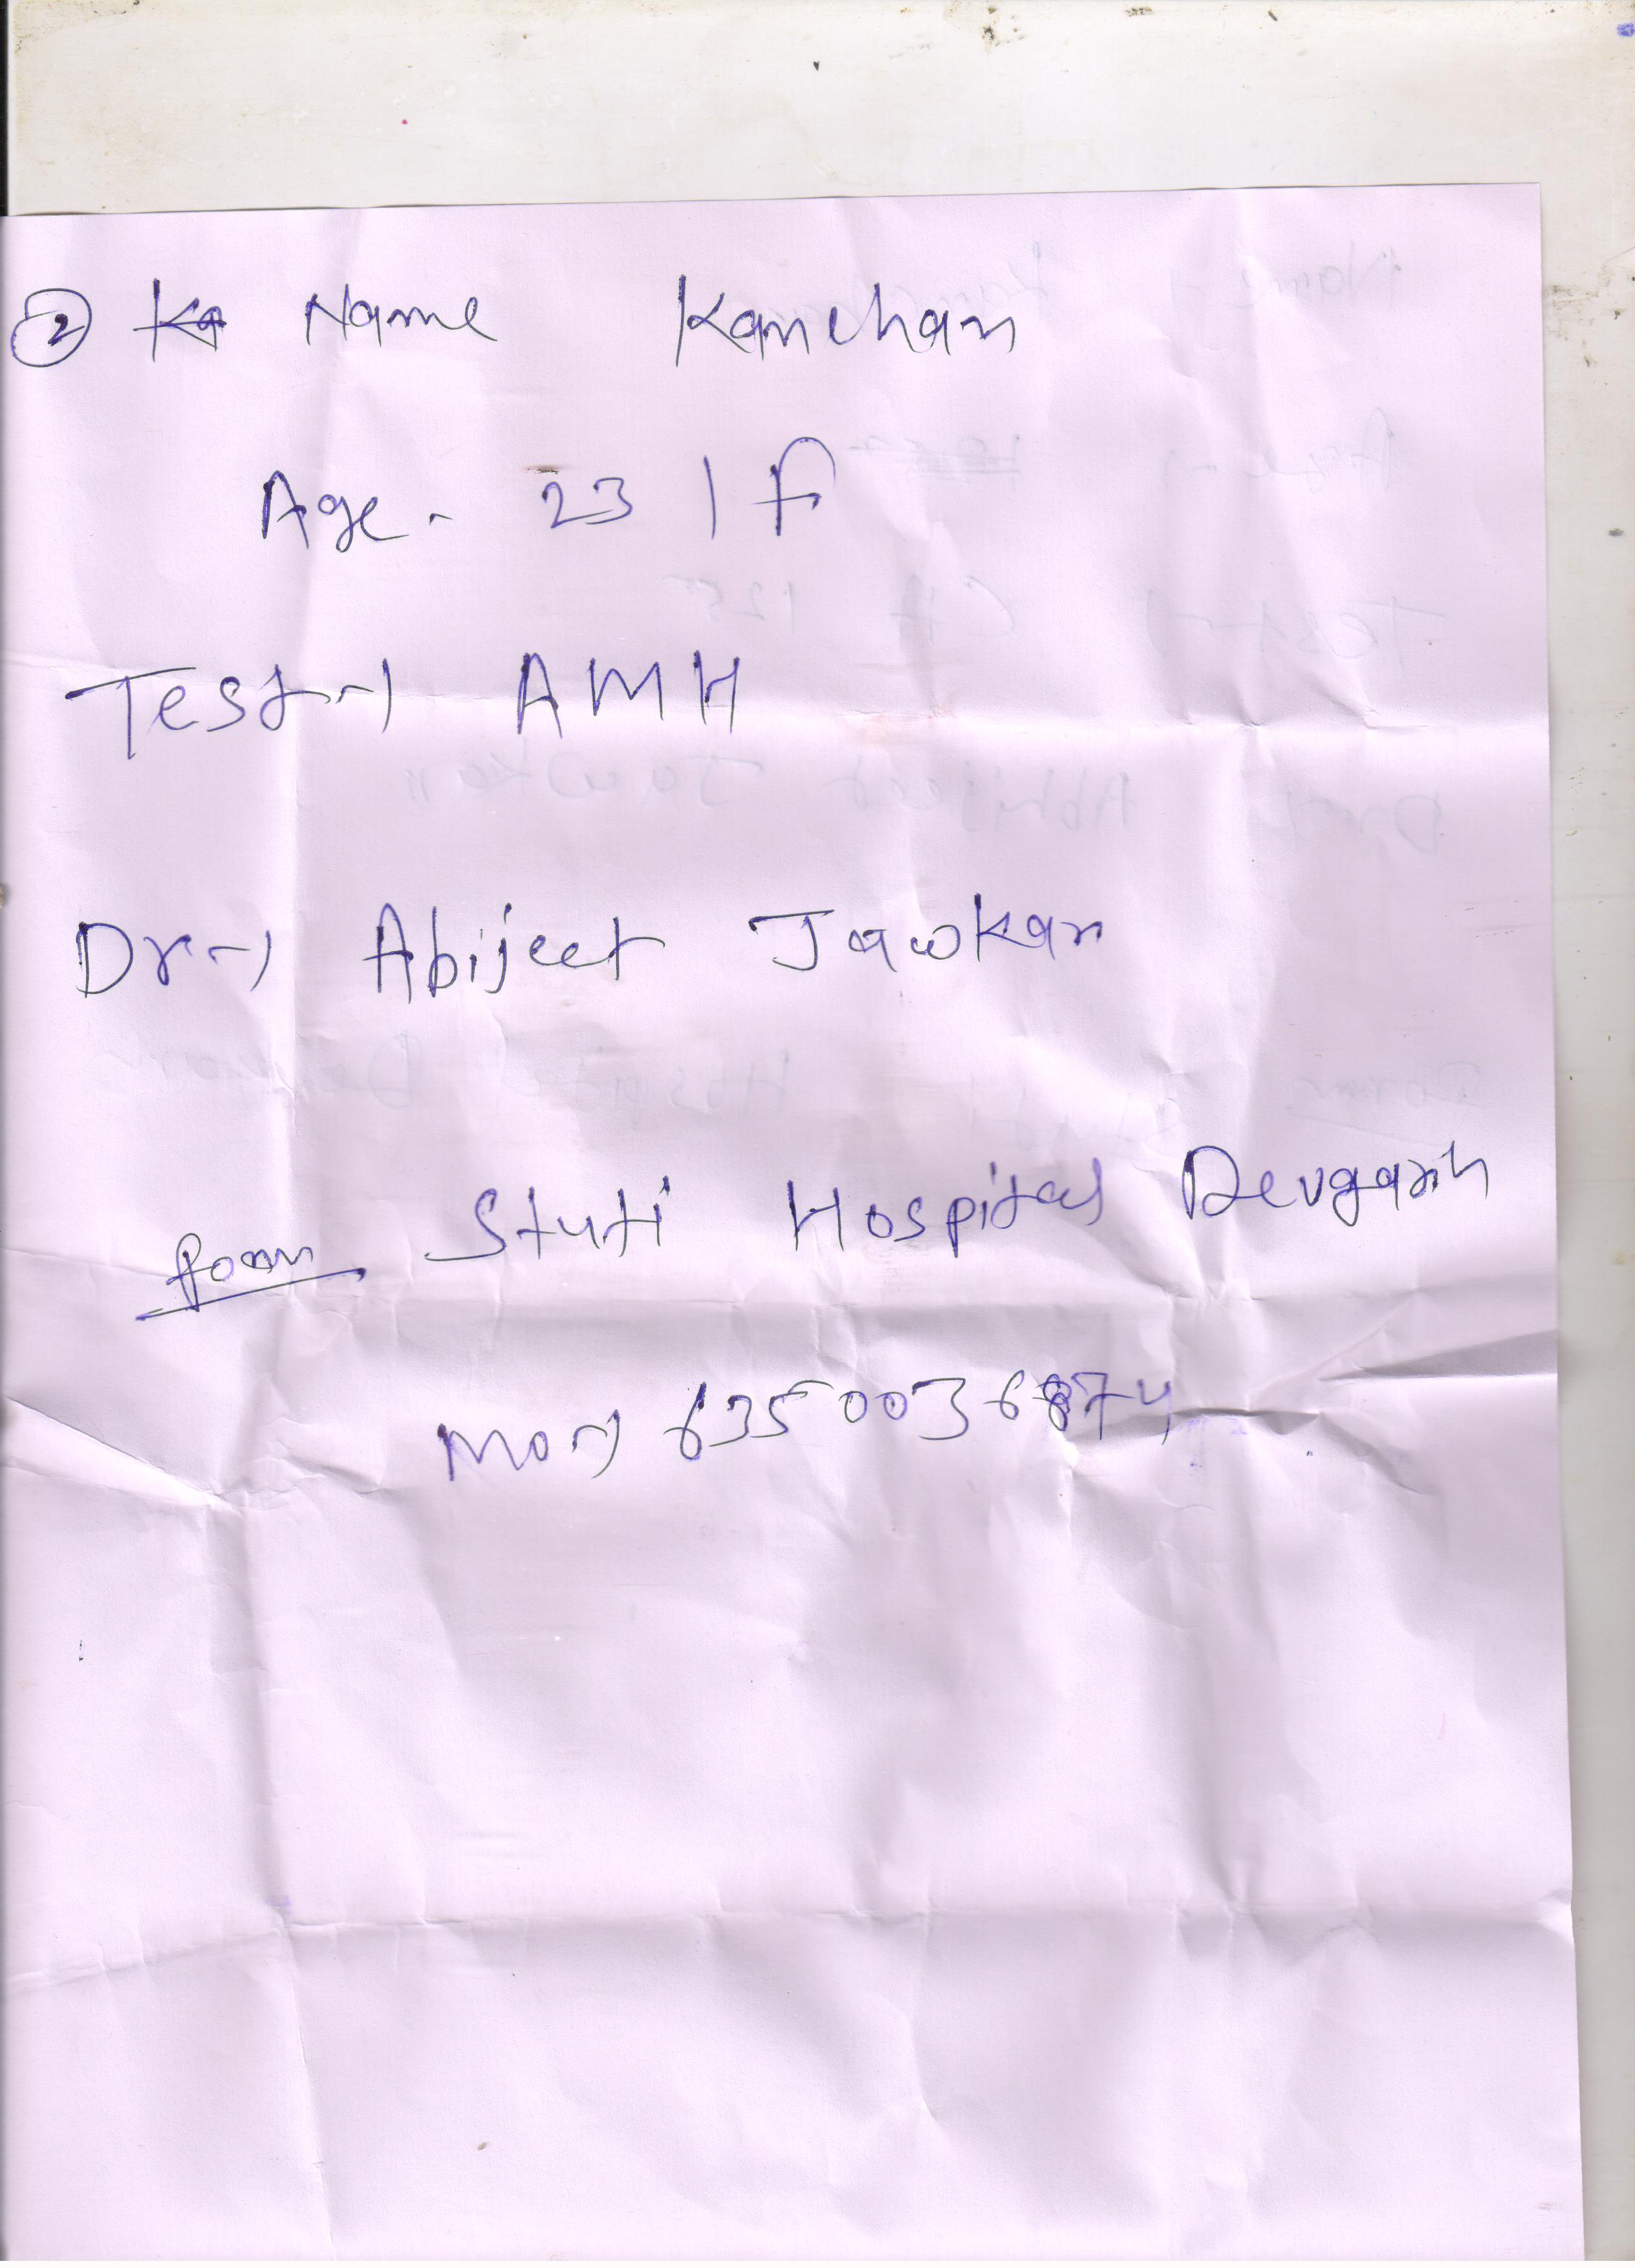 ② Name Kanchan
Age - 23 | F
Test → AMH
Dr → Abijeet Jawkar
from Stuti Hospital Devgarh
Mo →